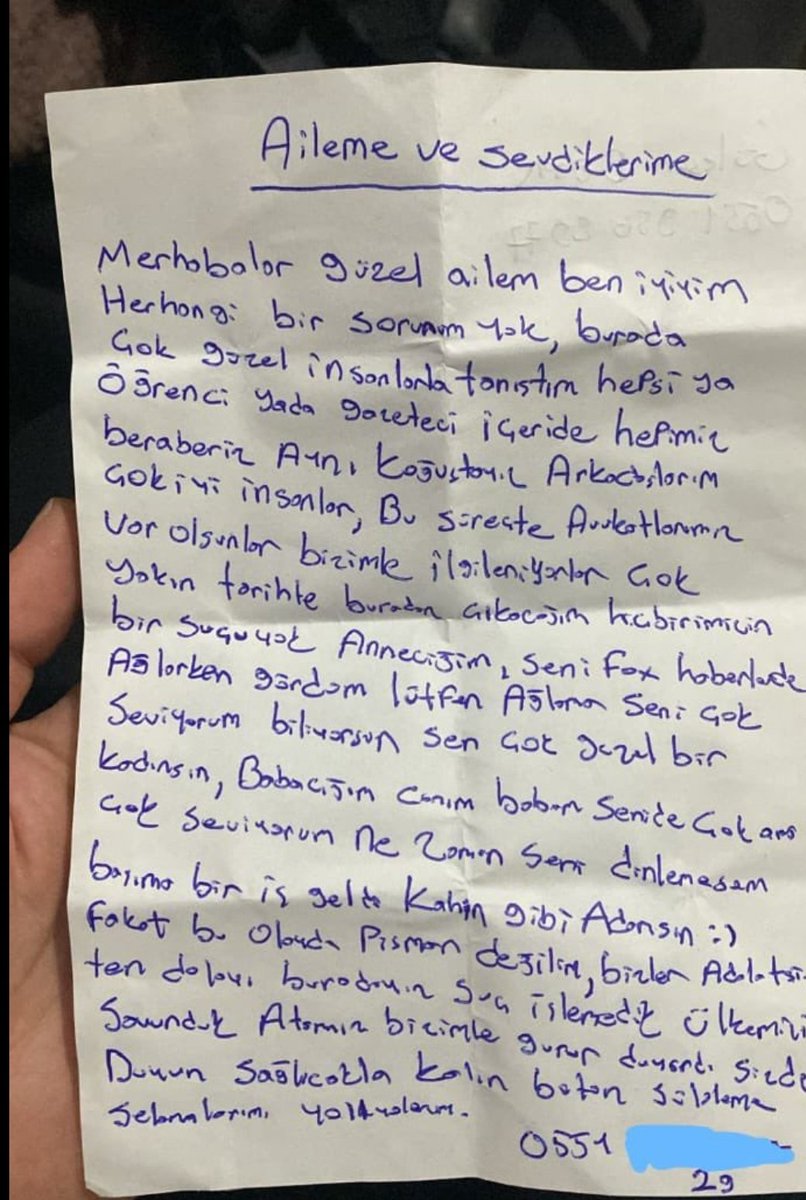 Aileme ve sevdiklerime
Merhabalar güzel ailem ben iyiyim
Herhangi bir sorunum yok, burada
Çok güzel insanlarla tanıştım hepsi ya
Öğrenci yada gazeteci içeride hepimiz
beraberiz Aynı koğuştayız Arkadaşlarım
Çok iyi insanlar, Bu süreçte Avukatlarımız
Var olsunlar bizimle ilgileniyorlar Çok
yakın tarihte buradan çıkacağım hiçbirimizin
bir suçu yok Anneciğim, seni fox haberlerde
Ağlarken gördüm lütfen Ağlama Seni çok
Seviyorum biliyorsun sen çok güzel bir
kadınsın, Babacığım canım babam Senide Çok ama
çok seviyorum Ne zaman seni dinlemesem
başıma bir iş geldi Kahin gibi Adamsın :)
fakat bu Olayda Pişman değilim, bizler
ten dolayı buradayız suç işlemedik Ülkemizi
Savunduk Atamız bizimle gurur duyardı sizde
Duyun Sağlıcakla kalın bütün sülaleme
selamlarımı yolluyorum.
0551
29